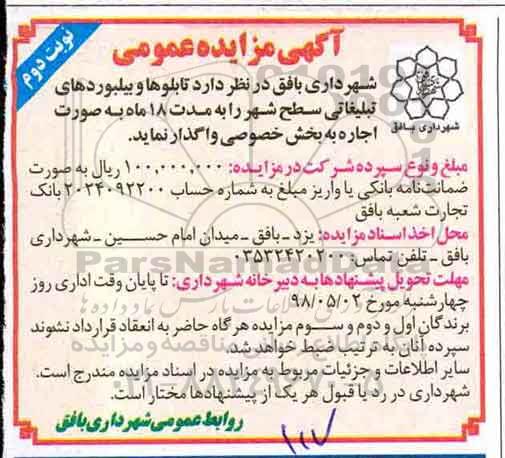 نوبت دوم
آگهی مزایده عمومی
شهرداری بافق
شهرداری بافق در نظر دارد تابلوها و بیلبوردهای
تبلیغاتی سطح شهر را به مدت ۱۸ ماه به صورت
اجاره به بخش خصوصی واگذار نماید.
مبلغ و نوع سپرده شرکت در مزایده: ۱۰۰,۰۰۰,۰۰۰ ریال به صورت
ضمانت‌نامه بانکی یا واریز مبلغ به شماره حساب ۲۰۲۴۰۹۲۲۰۰ بانک
تجارت شعبه بافق
محل اخذ اسناد مزایده: یزد ـ بافق ـ میدان امام حسین ـ شهرداری
بافق ـ تلفن تماس: ۰۳۵۳۲۴۲۰۲۰۰
مهلت تحویل پیشنهادها به دبیرخانه شهرداری: تا پایان وقت اداری روز
چهارشنبه مورخ ۹۸/۰۵/۰۲
برندگان اول و دوم و سوم مزایده هرگاه حاضر به انعقاد قرارداد نشوند
سپرده آنان به ترتیب ضبط خواهد شد.
سایر اطلاعات و جزئیات مربوط به مزایده در اسناد مزایده مندرج است.
شهرداری در رد یا قبول هر یک از پیشنهادها مختار است.
روابط عمومی شهرداری بافق
ParsNamadData